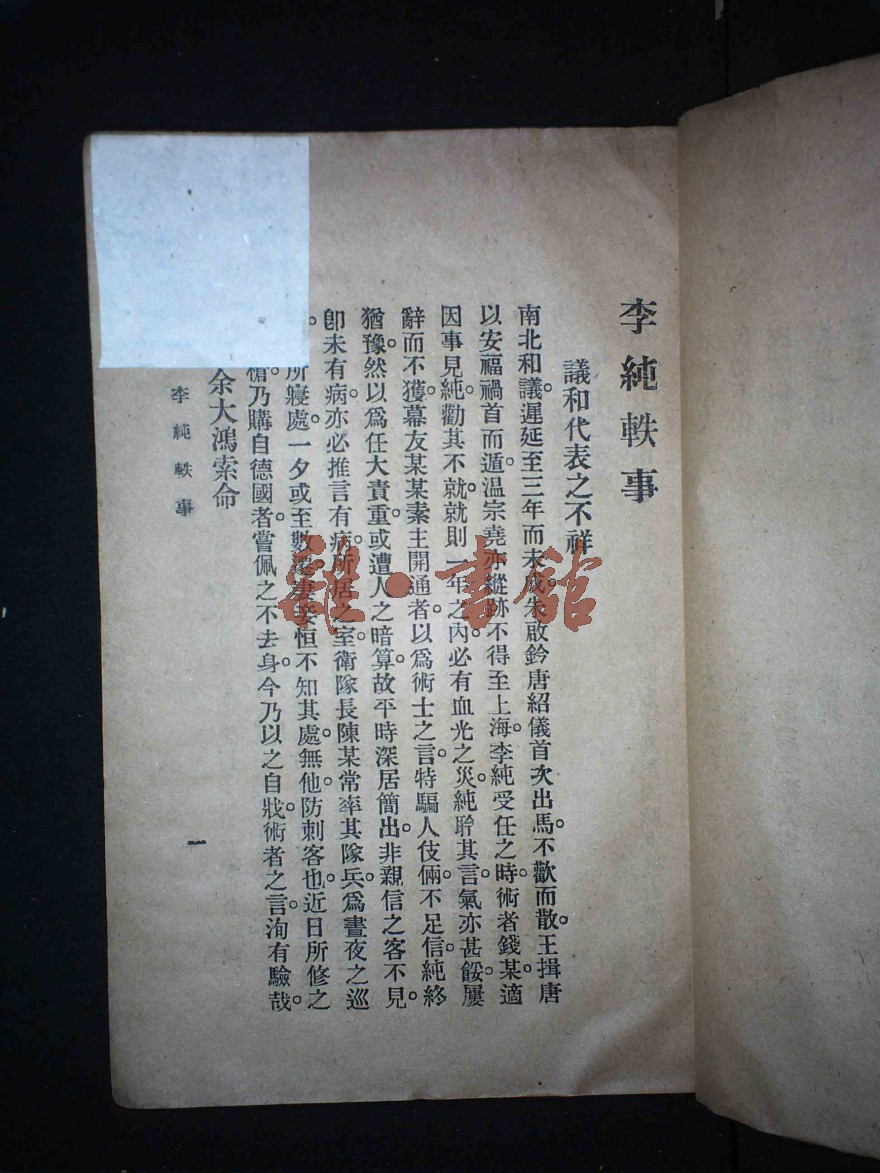 李純軼事
議和代表之不祥
南北和議。遲延至三年而未成。朱啟鈐唐紹儀首次出馬。不歡而散。王揖唐
以安福禍首而遁。温宗堯亦縱跡不得至上海。李純受任之時。術者錢某。適
因事見純。勸其不就。就則一年之內。必有血光之災。純聆其言。氣亦甚餒。屢
辭而不獲。幕友某某。素主開通者。以爲術士之言。特騙人伎倆。不足信。純終
猶豫。然以爲任大責重。或遭人之暗算。故平時深居簡出。非親信之客不見。
卽未有病。亦必推言有病。所居之室。衛隊長陳某常率其隊兵。爲晝夜之巡
。所寢處一夕或至數遷。妻妾恒不知其處。無他。防刺客也。近日所修之
槍。乃購自德國者。嘗佩之不去身。今乃以之自戕。術者之言。洵有驗哉。
余大鴻索命
李純軼事
一
雜·書館